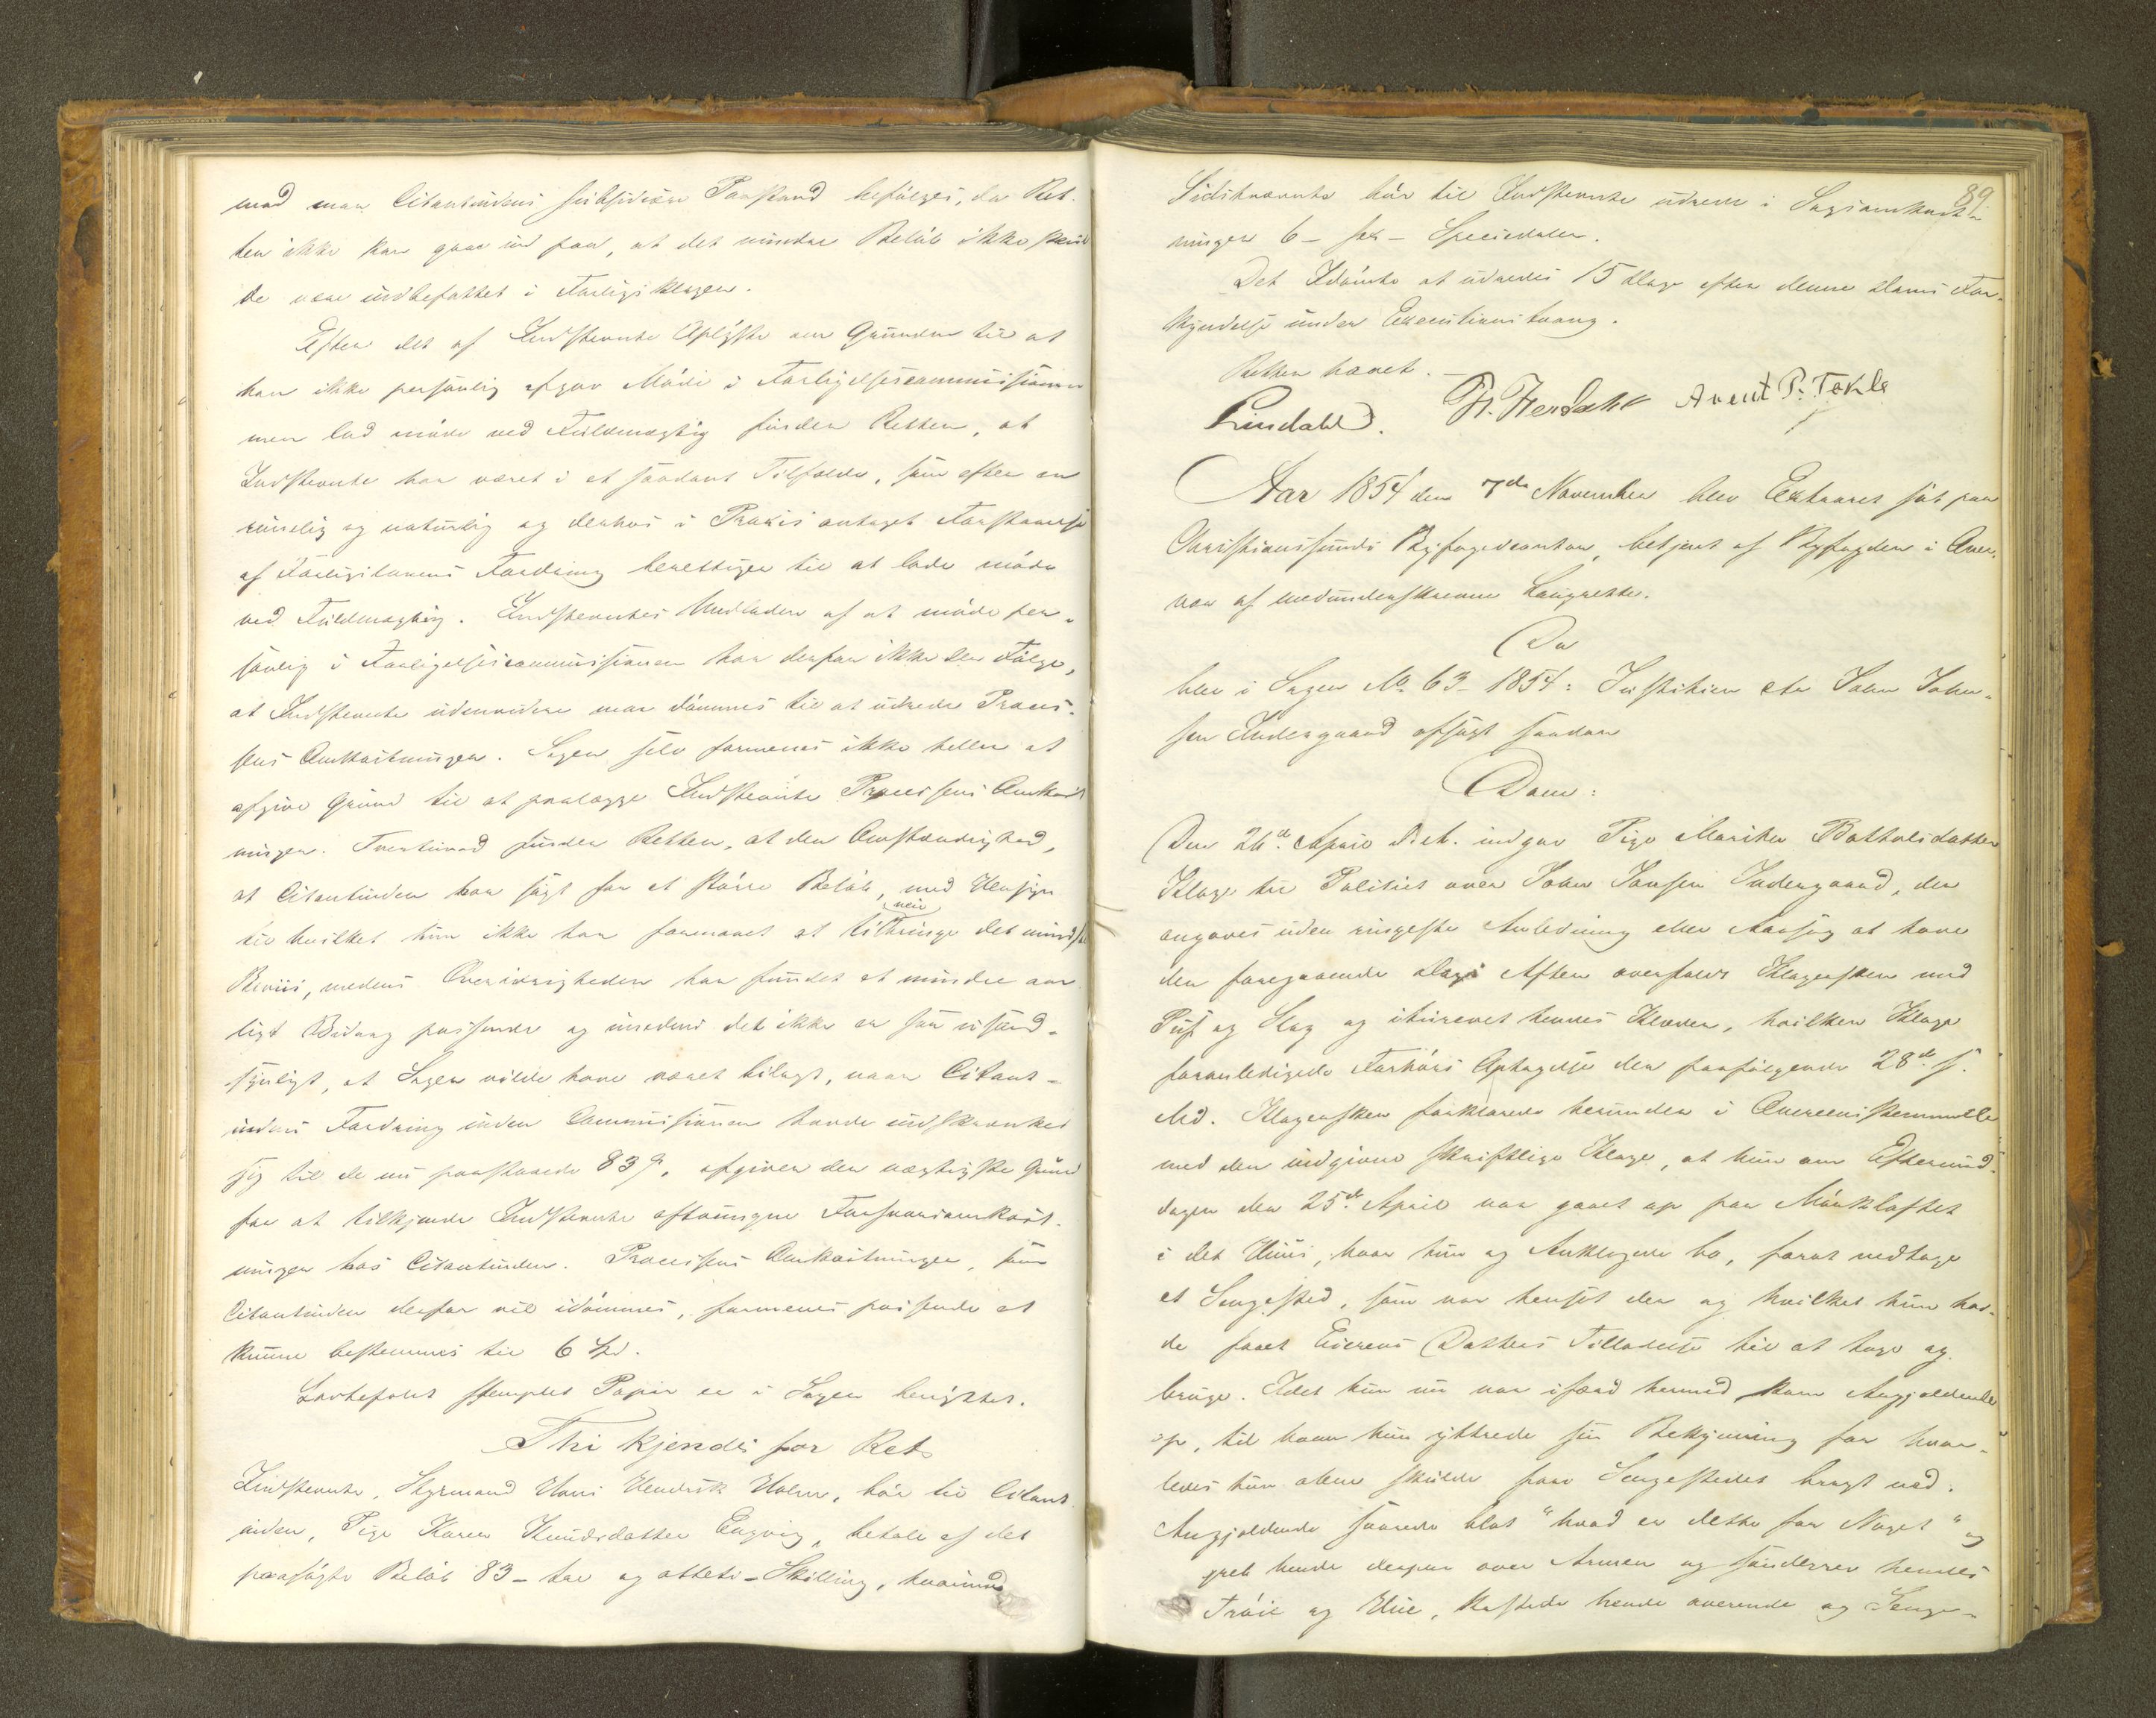 med maa Citantindens subsidiære Paastand befølges, da Ret-
ten ikke kan gaae ind paa, at det mindre Beløb ikke skul
de være indbefattet i Forligsklagen.
Efter det af Indstevnte Oplyste om Grunden til at
han ikke personlig afgav Møde i Forligelsescommissionen
men lod møde ved Fuldmægtig finder Retten, at
Indstevnte har været i et saadant Tilfælde, som efter en
rimelig og naturlig og derhos i Praxis antaget Forstaaelse
af Forligslovens Fordring berettiger til at lade møde
ved Fuldmægtig. Indstevntes Undladen af at møde per-
sonlig i Forligelsescommissionen har derfor ikke den Følge,
at Indstevnte udenvidere maa dømmes til at udrede Proces-
sens Omkostninger. Sagen selv formenes ikke heller at
afgive Grund til at paalægge Indstevnte Processens Omkost
ninger. Tvertimod finder Retten, at den Omstændighed,
at Citantinden har søgt for et større Beløb, med Hensyn
til hvilket hun ikke har formaaet at tilveiebringe det mindste
Beviis, medens Øvrigheden har fundet et mindre aar
ligt Bidrag passende og imedens det ikke er saa usand-
synligt, at Sagen vilde have været bilagt, naar Citant-
indens Fordring inden Commissionen havde indskrænket
sig til de nu paastaaede 83 ß, afgiver den vægtigste Grund
for at tilkjende Indstevnte Forsvarsomkost-
ninger hos Citantinden. Processens Omkostninger, som
Citantinden derfor vil idømmes, formenes passende at
kunne bestemmes til 6 Spd.
Lovbefalet stemplet Papir er i Sagen benyttet.
Thi kjendes for Ret:
Indstevnte, Styrmand Hans Hendrik Holm, bør til Citant
inden, Pige Karen Knudsdatter Engvig, betale af det
paasøgte Beløb 83 - tre og otteti - Skilling, hvorimod
89
Sidstnævnte bør til Indstevnte udrede i Sagsomkost-
ninger 6 - sex - Speciedaler.
Det Idømte at udredes 15 Dage efter denne Doms For-
kyndelse under Executionstvang.
Retten hævet. -
Lindahl. Fr. Herdahl Arent P. Tøkle
Aar 1854 den 7de November blev Extraret sat paa
Christianssunds Byfogedcontor, betjent af Byfogden i Over-
vær af medunderskrevne Laugrette.
Da
blev i Sagen No 63 - 1854: Justitien ctr John John-
sen Indergaard afsagt saadan
Dom:
Den 26de April d.A. indgav Pige Marithe Botholsdatter
Klage til Politiet over John Jonsen Indergaard, der
angaves uden ringeste Anledning eller Aarsag at have
den foregaaende Dags Aften overfaldt Klagersken med
Puf og Slag og iturevet hendes Klæder, hvilken Klage
foranledigede Forhørs Optagelse den paafølgende 28de s.
Md. Klagersken forklarede herunder i Overeensstemmelse
med den indgivne skriftlige Klage, at hun om Eftermid-
dagen den 25de April var gaaet op paa Mørkloftet
i det Huus, hvor hun og Anklagede bo, forat nedtage
et Sengested, som var hensat der og hvilket hun hav-
de faaet Eierens Datters Tilladelse til at tage og
bruge. Idet hun nu var ifærd hermed kom Angjældende
op, til hvem hun yttrede sin Bekymring for hvor-
ledes hun alene skulde faae Sengestedet bragt ned.
Angjældende svarede blot "hvad er dette for Noget" og
greb hende derpaa over Armen og sønderrev hendes
Trøie og Hue, kastede hende overende og Senge-